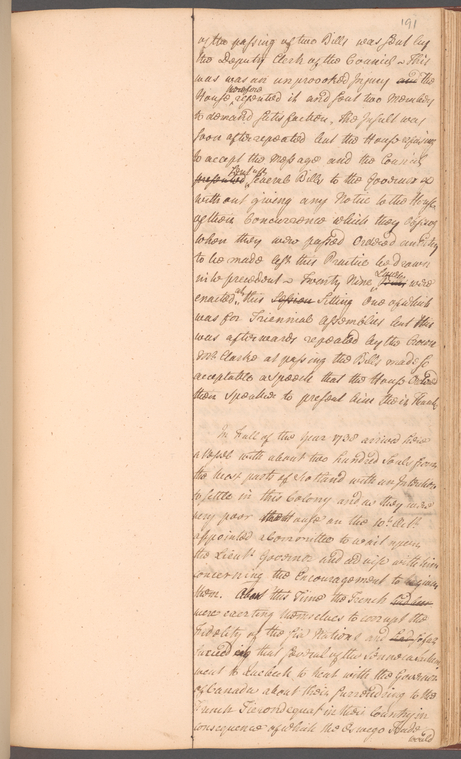 191
of the passing of two Bills was sent by
the Deputy Clerk of the Council This
was was an unprovoked Injury and the
House therefore resented it and sent two Members
to demand Satisfaction, the Insult was
soon after repeated but the House refusing
to accept the Message and the Council
presented sent up several Bills to the Governor
without giving any Notice to the House
of their Concurrence which they
when they were passed Ordered an Entry
to be made lest this Practice be drawn
into president Twenty Nine Laws were
enacted at this Session Sitting One of which
was for Triennial Assemblies but this
was afterwards repealed by the Crown
Mr Clarke at passing the Bills made so
acceptable a Speech that the House Ordered
their Speaker to present him their Thanks
In Fall of the Year 1738 arrived here
a Vessel with about two hundred Souls from
the West parts of Scotland with an Intention
to settle in this Colony and as they were
very poor the House on the Octr
appointed a Committee to wait upon
the Lieut Governor and advise with him
concerning the Encouragement to
them. About this Time the French
were exerting themselves to corrupt the
Fidelity of the five Nations and so far
that several of the
went to Quebeck to treat with the Governor
of Canada about their surrendring to the
French in their Country in
consequence of which the Oswego Trade
would